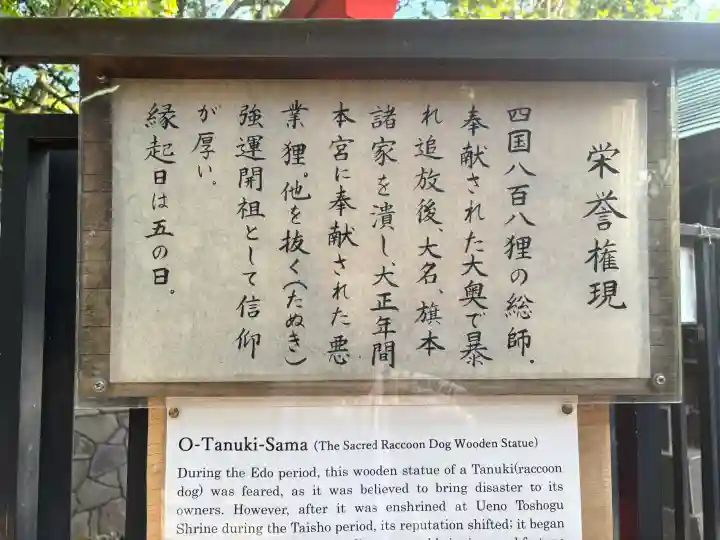 栄誉権現
四国八百八狸の総師。
奉献された大奥で暴
れ追放後、大名、旗本
諸家を潰し、大正年間
本宮に奉献された悪
業狸。他を抜く(たぬき)
強運開祖として信仰
が厚い。
縁起日は五の日。
O-Tanuki-Sama (The Sacred Raccoon Dog Wooden Statue)
During the Edo period, this wooden statue of a Tanuki(raccoon
dog) was feared, as it was believed to bring disaster to its
owners. However, after it was enshrined at Ueno Toshogu
Shrine during the Taisho period, its reputation shifted; it began